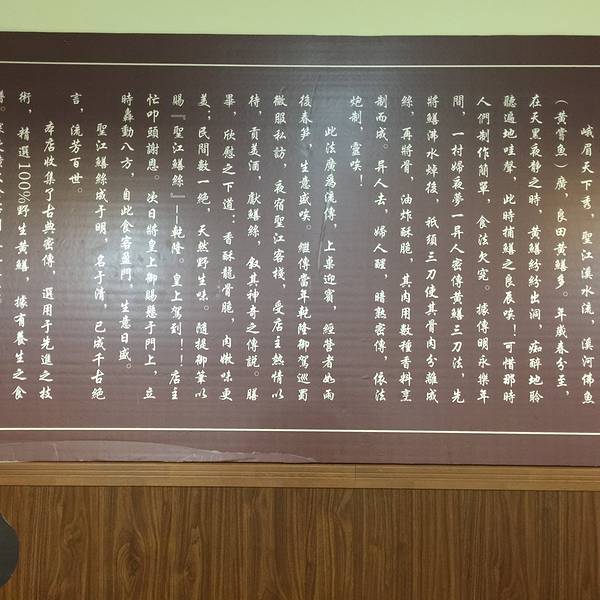 峨眉天下秀，聖江溪水流，溪河佛魚
（黃嘗魚）廣，良田黃鱔多。年歲春分至，
在天黑夜静之時，黃鱔紛紛出洞，痴醉地聆
聽遍地哇聲，此時捕鱔之良辰唉！可惜那時
人們制作簡單，食法欠完。據傳明永樂年
間，一村婦夜夢一昇人密傳黃鱔三刀法，先
將鱔沸水焯後，祇須三刀使其骨肉分離成
絲，再將骨，油炸酥脆，其肉用數種香料烹
制而成。昇人去，婦人醒，暗熟密傳，依法
炮制，靈唉！
此法廣爲流傳，上桌迎賓，經營者如雨
後春笋，生意盛唉。繼傳當年乾隆御駕巡蜀
微服私訪，夜宿聖江客棧，受店主熱情以
待，貢美酒，獻鱔絲，叙其神奇之傳説。膳
畢，欣慰之下道：香酥龍骨脆，肉嫩味更
美；民間數一絶，天然野生味。隨提御筆以
賜『聖江鱔絲』——乾隆。皇上駕到！！店主
忙叩頭謝恩。次日將皇上御賜懸于門上，立
時轟動八方，自此食客盈門，生意日盛。
聖江鱔絲成于明，名于清，已成千古絶
言，流芳百世。
本店收集了古典密傳，選用于先進之技
術，精選100%野生黃鱔，據有養生之食